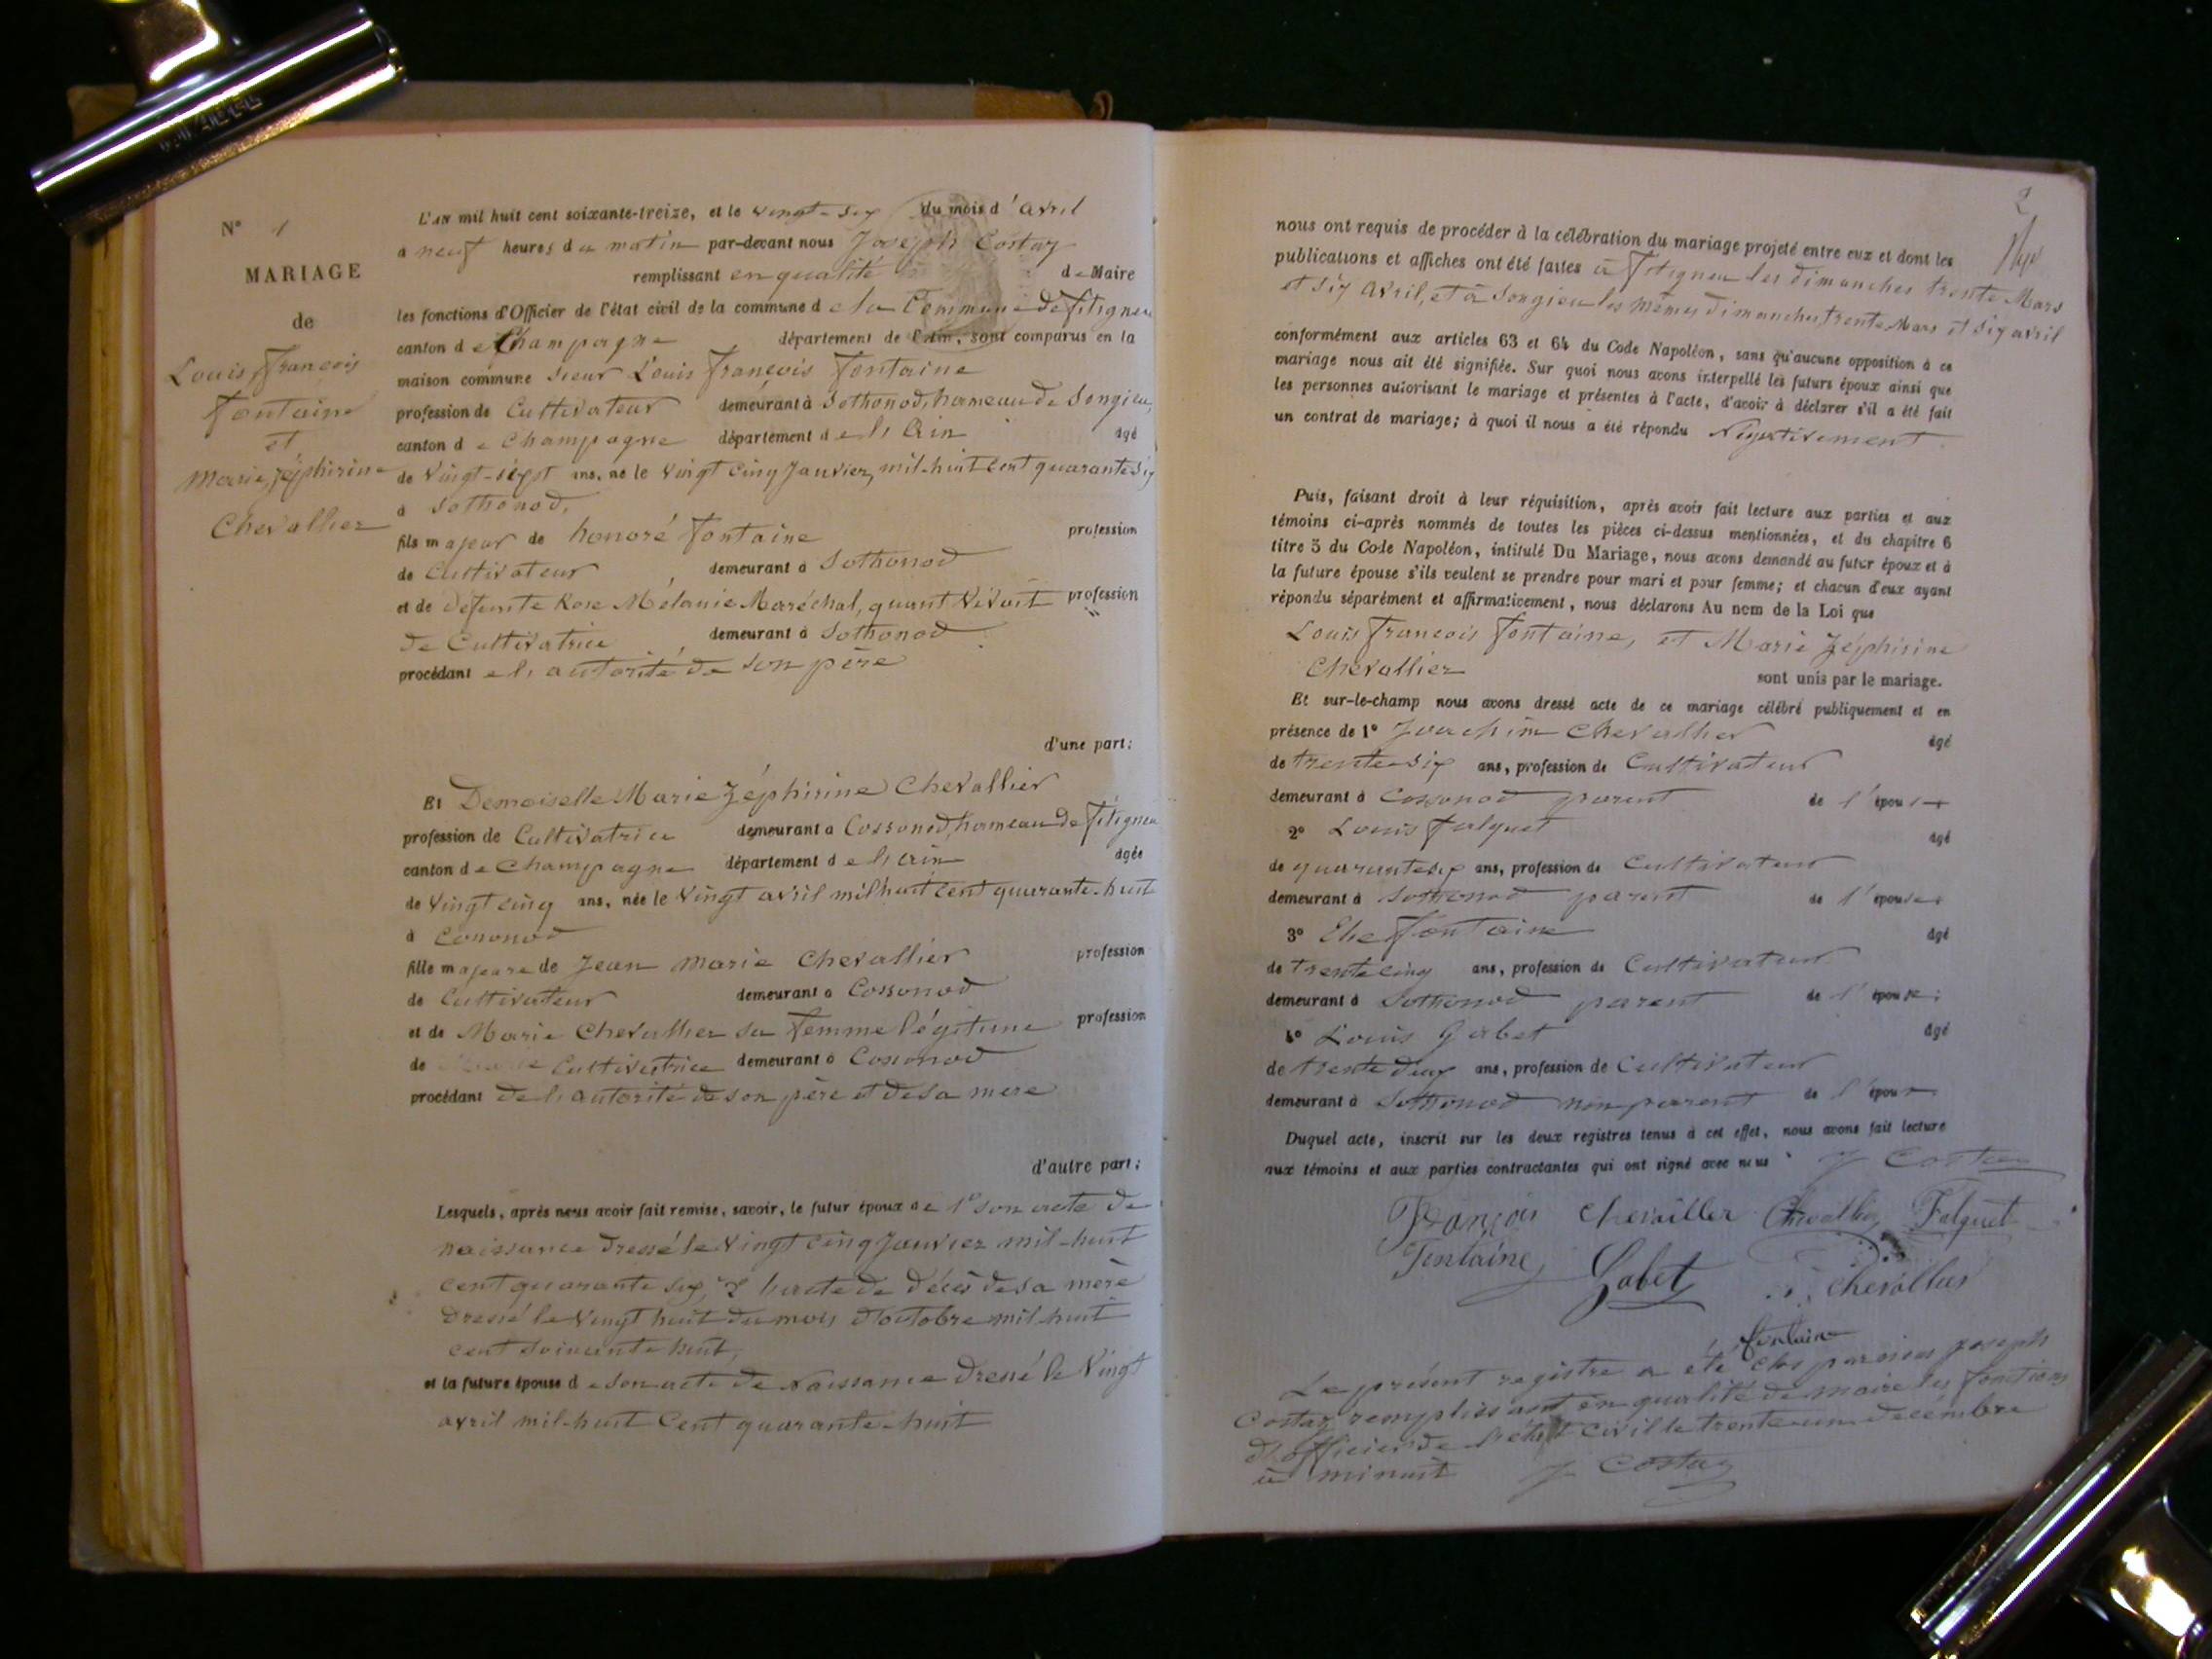 N° 1
MARIAGE
de
Louis François
Fontaine
et
Marie Zéphirine
Chevallier
L'AN mil huit cent soixante-treize, et le vingt-six du mois d'avril
a neuf heures du matin par-devant nous Joseph Costaz
remplissant en qualité de Maire
les fonctions d'Officier de l'état civil de la commune de la Commune de fitignieu
canton de Champagne département de l'Ain, sont comparus en la
maison commune sieur Louis françois fontaine
profession de Cultivateur demeurant à Sothonod, hameau de Songieu,
canton de Champagne département de l'Ain âgé
de vingt-sept ans, né le vingt cinq Janvier, mil-huit cent quarante six
à Sothonod,
fils majeur de honoré fontaine profession
de Cultivateur demeurant à Sothonod
et de défunte Rose Mélanie Maréchal, quant vivait profession
de Cultivatrice demeurant à Sothonod
procédant de l'autorité de son père
d'une part;
Et Demoiselle Marie Zéphirine Chevallier
profession de Cultivatrice demeurant à Cossonod, hameau de fitignieu
canton de Champagne département de l'Ain âgée
de vingt cinq ans, née le vingt avril mil huit cent quarante-huit
à Cononod
fille majeure de Jean Marie Chevallier profession
de Cultivateur demeurant à Cossonod
et de Marie Chevallier sa femme légitime profession
de Cultivatrice demeurant à Cossonod
procédant de l'autorité de son père et de sa mere
d'autre part;
Lesquels, après nous avoir fait remise, savoir, le futur époux de 1° son acte de
naissance dressé le vingt cinq Janvier mil-huit
cent quarante six, 2° l'acte de décès de sa mère
dressé le vingt huit du mois d'octobre mil huit
cent soixante huit,
et la future épouse de son acte de Naissance dressé le vingt
avril mil-huit Cent quarante-huit
2
nous ont requis de procéder à la célébration du mariage projeté entre eux et dont les
publications et affiches ont été faites à fitignieu les dimanches trente Mars
et six avril, et à Songieu les mêmes dimanches trente Mars et six avril
conformément aux articles 63 et 64 du Code Napoléon, sans qu'aucune opposition à ce
mariage nous ait été signifiée. Sur quoi nous avons interpellé les futurs époux ainsi que
les personnes autorisant le mariage et présentes à l'acte, d'avoir à déclarer s'il a été fait
un contrat de mariage; à quoi il nous a été répondu Négativement
Puis, faisant droit à leur réquisition, après avoir fait lecture aux parties et aux
témoins ci-après nommés de toutes les pièces ci-dessus mentionnées, et du chapitre 6
titre 5 du Code Napoléon, intitulé Du Mariage, nous avons demandé au futur époux et à
la future épouse s'ils veulent se prendre pour mari et pour femme; et chacun d'eux ayant
répondu séparément et affirmativement, nous déclarons Au nom de la Loi que
Louis françois fontaine, et Marie Zéphirine
Chevallier sont unis par le mariage.
Et sur-le-champ nous avons dressé acte de ce mariage célébré publiquement et en
présence de 1° Joachim Chevallier âgé
de trente-six ans, profession de Cultivateur
demeurant à Cossonod parent de l'épouse
2° Louis falquet âgé
de quarante six ans, profession de Cultivateur
demeurant à Sothonod parent de l'époux
3° Elie fontaine âgé
de trente cinq ans, profession de Cultivateur
demeurant à Sothonod parent de l'époux;
4° Louis Gabet âgé
de trente deux ans, profession de Cultivateur
demeurant à Sothonod non parent de l'époux
Duquel acte, inscrit sur les deux registres tenus à cet effet, nous avons fait lecture
aux témoins et aux parties contractantes qui ont signé avec nous J Costaz
François Chevailler Chevallier Falquet
Fontaine Gabet Chevallier
fontaine
Le présent registre a été clos par nous joseph
Costaz remplissant en qualité de maire les fonctions
d'officier de l'état civil le trente un décembre
à minuit J Costaz